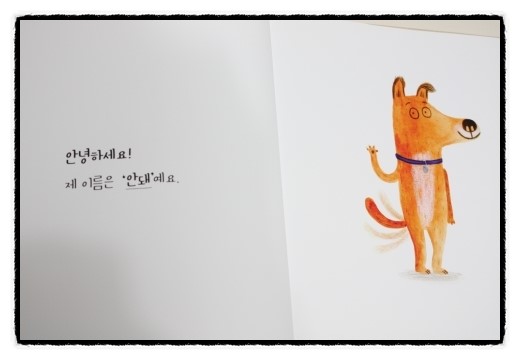 안녕하세요!
제 이름은 '안돼'예요.